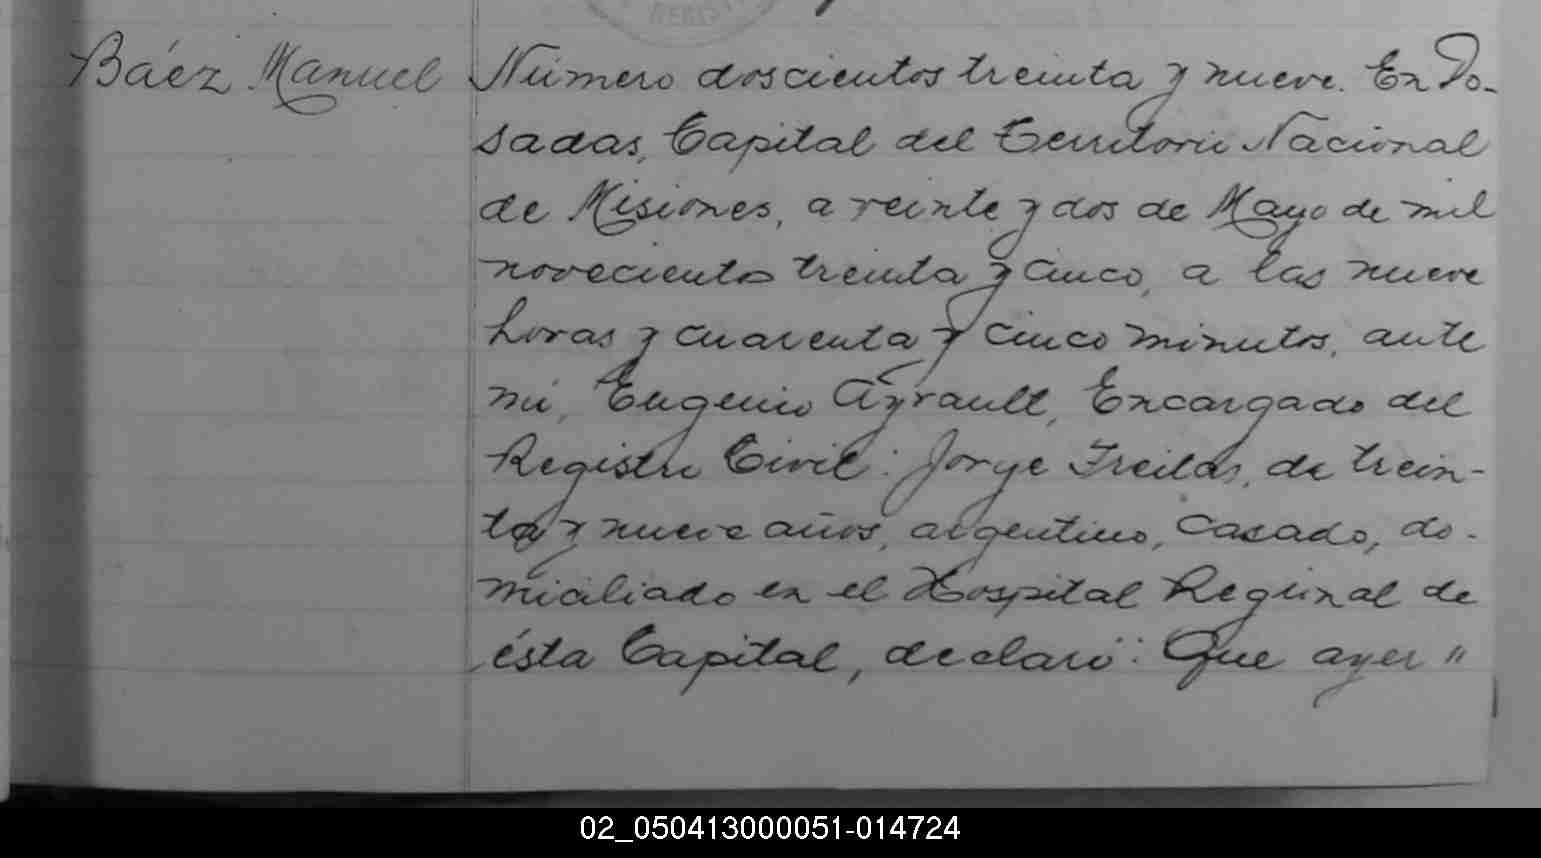 REGIST
Báez Manuel
Número doscientos treinta y nueve. En Po-
sadas, Capital del Territorio Nacional
de Misiones, a veinte y dos de Mayo de mil
novecientos treinta y cinco, a las nueve
horas y cuarenta y cinco minutos, ante
mí, Eugenio Ayrault, Encargado del
Registro Civil: Jorge Freitas, de trein-
ta y nueve años, argentino, casado, do-
miciliado en el Hospital Regional de
ésta Capital, declaró: Que ayer "
02_050413000051-014724